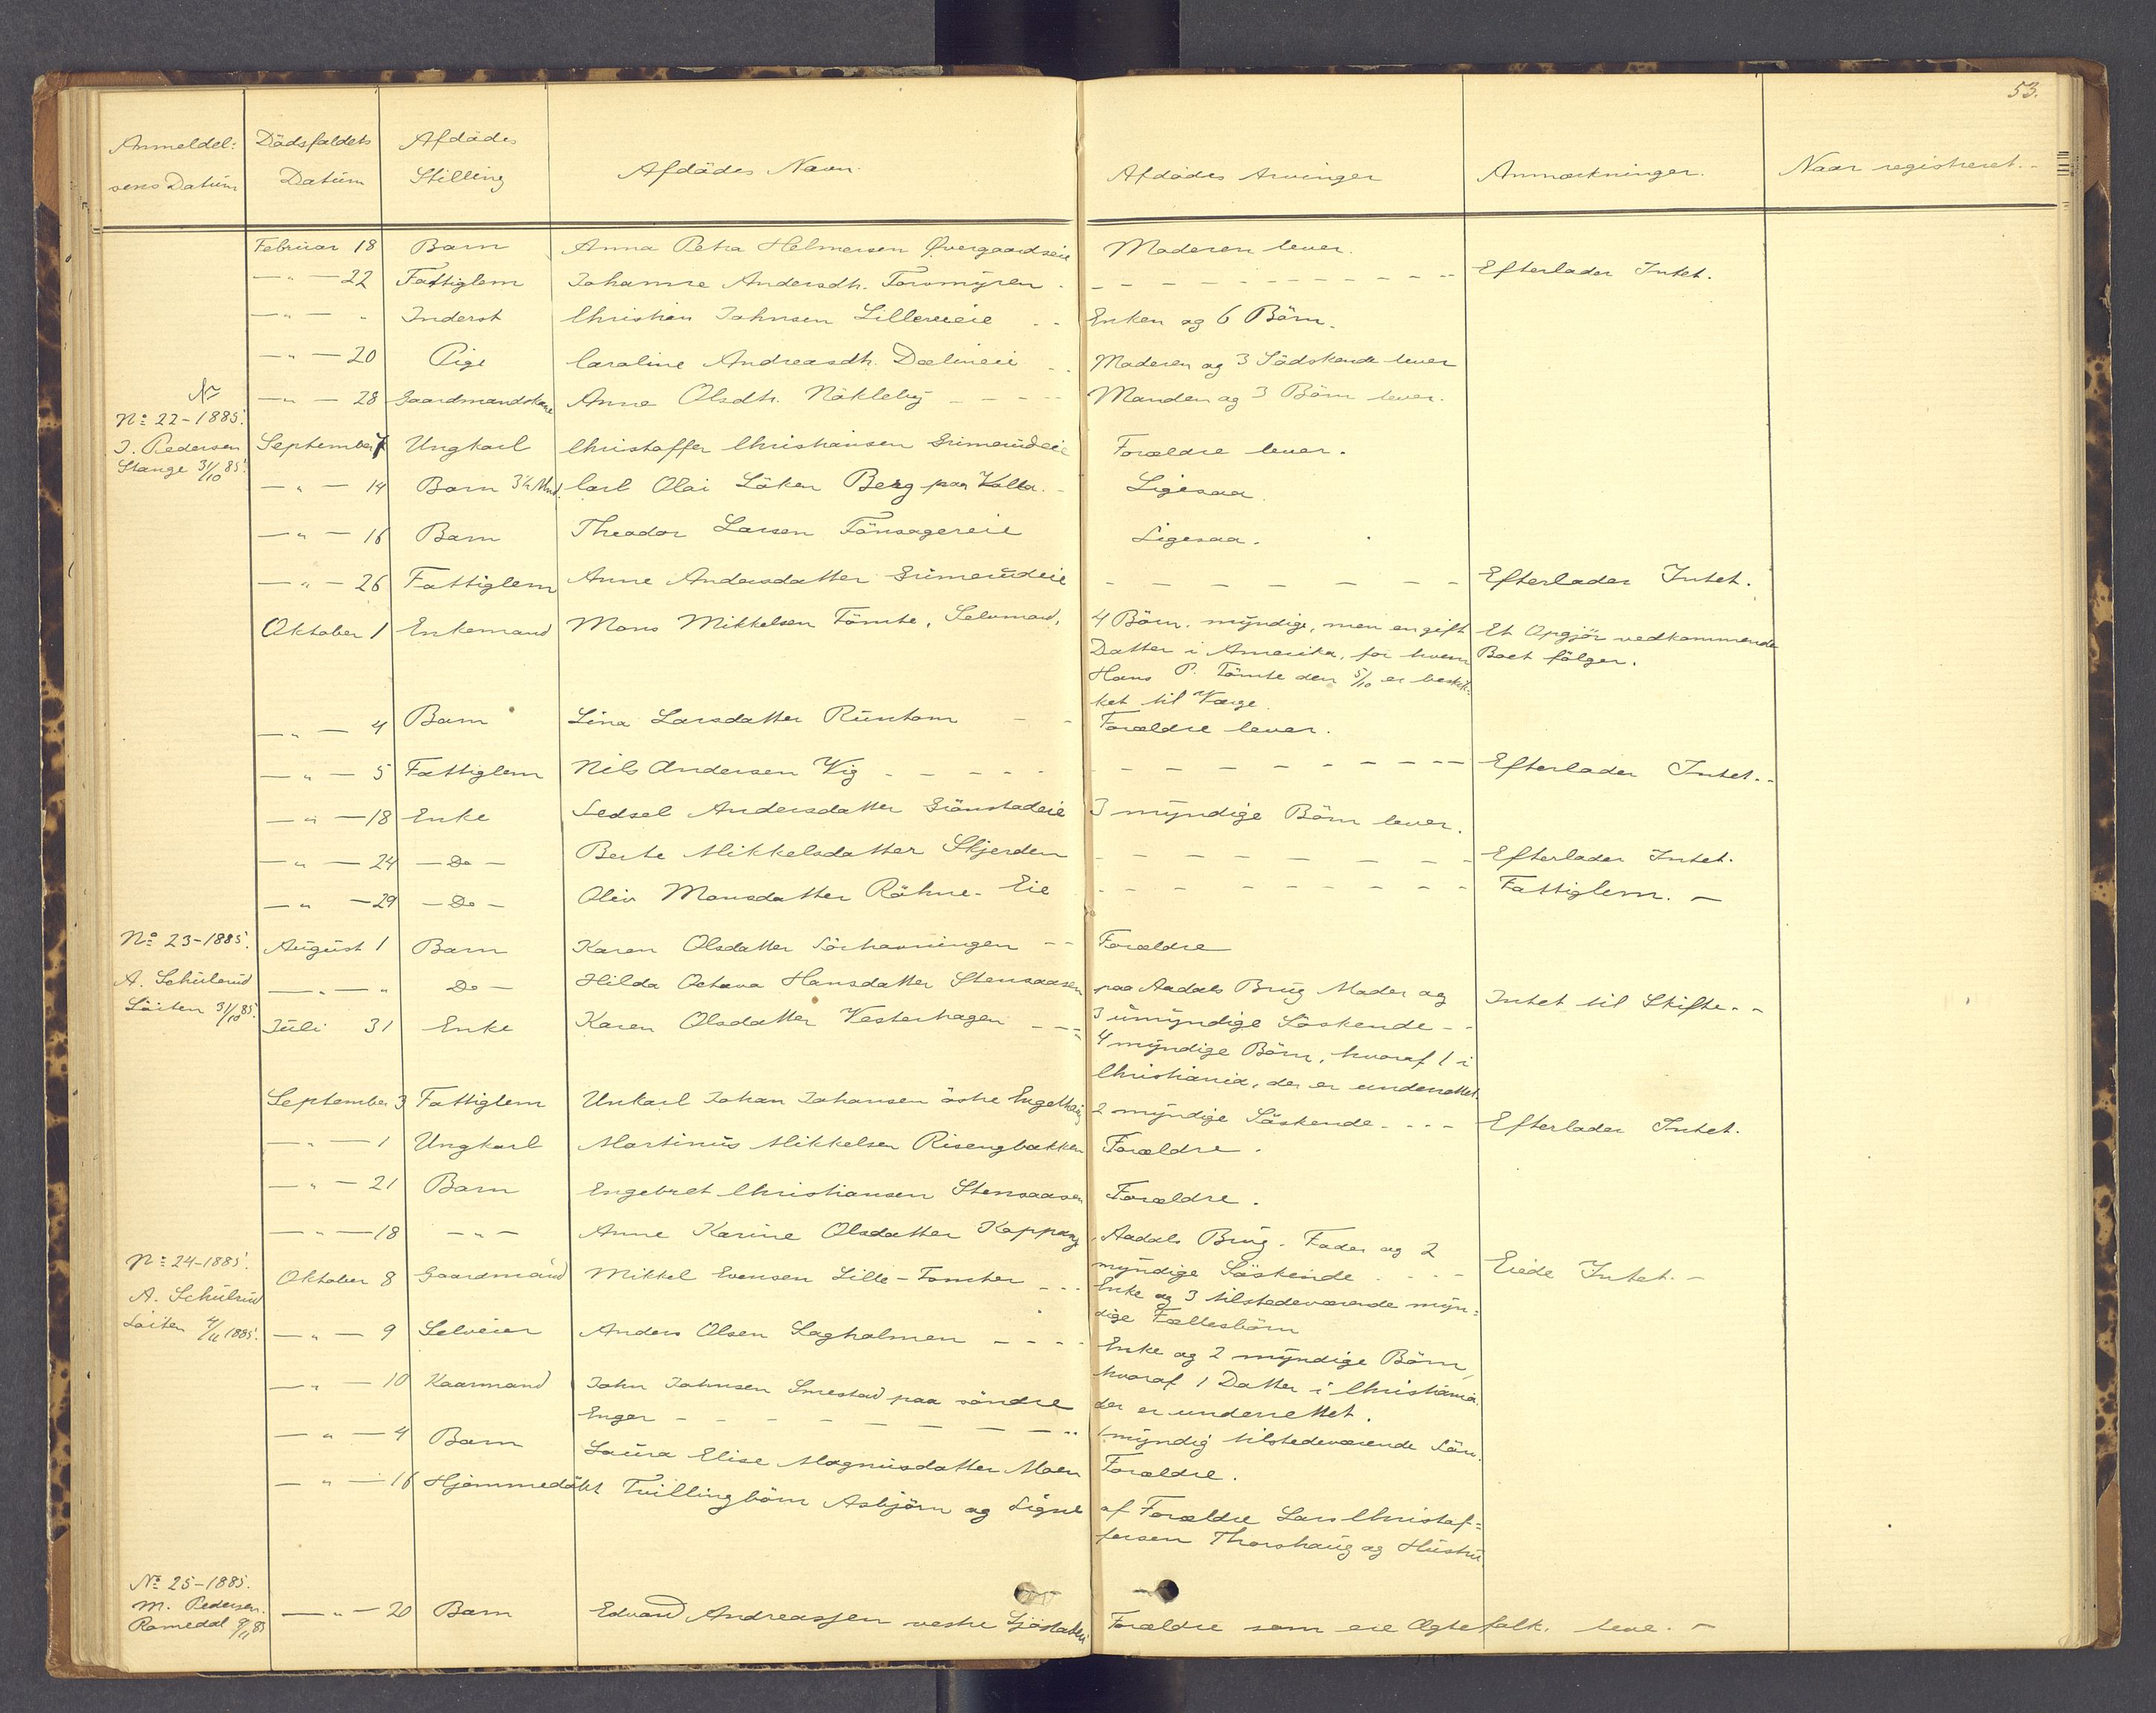 53.
Anmeldel: Dödsfaldets Afdödes
sens Datum Datum Stilling Afdödes Navn. Afdödes Arvinger Anmærkninger. Naar registreret.-
Februar 18 Barn Anna Petra Helmersen Øvergaardseie Moderen lever.
— " — 22 Fattiglem Johanne Andersdtr. Torsmyren - Efterlader Intet.
— " — " Inderst Christian Johnsen Lillereeie - - Enken og 6 Börn.
— " — 20 Pige Caroline Andreasdtr. Dælineie - - Moderen og 3 Södskende lever
No
— " — 28 Gaardmandskone Anne Olsdtr. Nökleby - - - - Manden og 3 Börn lever.
No 22-1885.
J. Pedersen September 7 Ungkarl Christoffer Christiansen Grimerudeie Forældre lever.
Stange 31/10 85.
— " — 14 Barn 3½ Mnd. Carl Olai Löken Berg paa Kolla. - Ligesaa.
— " — 16 Barn Theodor Larsen Tönsagereie Ligesaa.
— " — 26 Fattiglem Anne Andersdatter Grimerudeie - - - - - - - Efterlader Intet.
Oktober 1 Enkemand Mons Mikkelsen Tömte, Selvmord, 4 Börn, myndige, men en gift Et Opgjör vedkommende
Datter i Amerika, for hvem Boet fölger.
Hans P. Tömte den 5/10 er beskik:
ket til Værge.
— " — 4 Barn Lina Larsdatter Runtom - - Forældre lever.
— " — 5 Fattiglem Nils Andersen Vig - - - - - Efterlader Intet.-
— " — 18 Enke Sedsel Andersdatter Grönstadeie 3 myndige Börn lever.
— " — 24 — Do — Berte Mikkelsdatter Skjerden - - - - - - - - Efterlader Intet.
— " — 29 — Do — Oliv Monsdatter Röhne-Eie - - - - - - - - Fattiglem. —
No 23-1885. August 1 Barn Karen Olsdatter Sörhavningen - - Forældre
A. Schulerud — " — " Do — Hilda Octava Hansdatter Stensaasen paa Aadals Brug Moder og Intet til Skifte. - -
Löiten 31/10 85. 3 umyndige Söskende - -
Juli 31 Enke Karen Olsdatter Vesterhagen - - - 4 myndige Börn, hvoraf 1 i
Christiania, der er underrettet.
September 3 Fattiglem Unkarl Johan Johansen östre Engelhaug 2 myndige Söskende - - - - Efterlader Intet.
— " — 1 Ungkarl Martinus Mikkelsen Risengbakken Forældre.
— " — 21 Barn Engebret Christiansen Stensaasen Forældre.
— " — 18 — " — Anne Karine Olsdatter Koppang, Aadals Brug. Fader og 2
myndige Söskende - - - - Eiede Intet. —
No 24-1885. Oktober 8 Gaardmand Mikkel Evensen Lille-Tomter - - - Enke og 3 tilstedeværende myn:
A. Schulrud dige Fællesbörn
Löiten 4/11 1885. — " — 9 Selveier Anders Olsen Sagholmen - - - - Enke og 2 myndige Börn,
hvoraf 1 Datter i Christiania.
der er underrettet.
— " — 10 Kaarmand John Johnsen Smestad paa söndre
Enger - - - - - - - - 1 myndig tilstedeværende Sön.
— " — 4 Barn Laura Elise Magnusdatter Moen Forældre.
— " — 16 Hjemmedöbt Tvillingbörn Asbjörn og Signe af Forældre Lars Christof=
fersen Thorshaug og Hustru
No 25-1885.
M. Pedersen. — " — 20 Barn Edvard Andreassen vestre Sjöstadeie Forældre som ere Ægtefolk. leve. —
Romedal 9/11 85